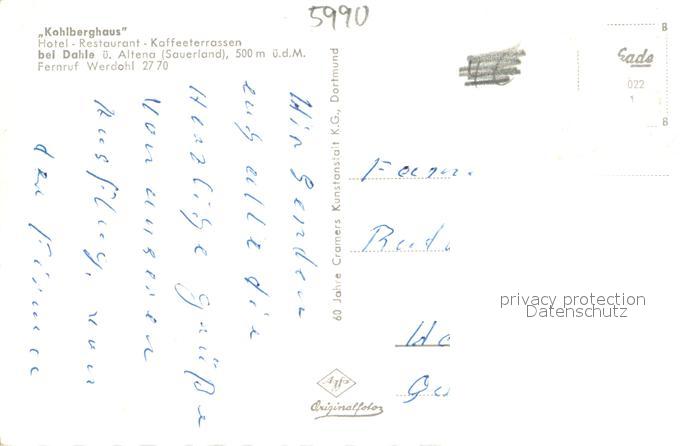 5990
„Kohlberghaus"
Hotel - Restaurant - Kaffeeterrassen
bei Dahle ü. Altena (Sauerland), 500 m ü.d.M.
Fernruf Werdohl 27 70
Wir senden
euch alle die
Herzlige grüße
von unseren
Ausflug, von
der Firma
60 Jahre Cramers Kunstanstalt K.G., Dortmund
Fam.
Agfa
Originalfoto
privacy protection
Datenschutz
B
022
1
B